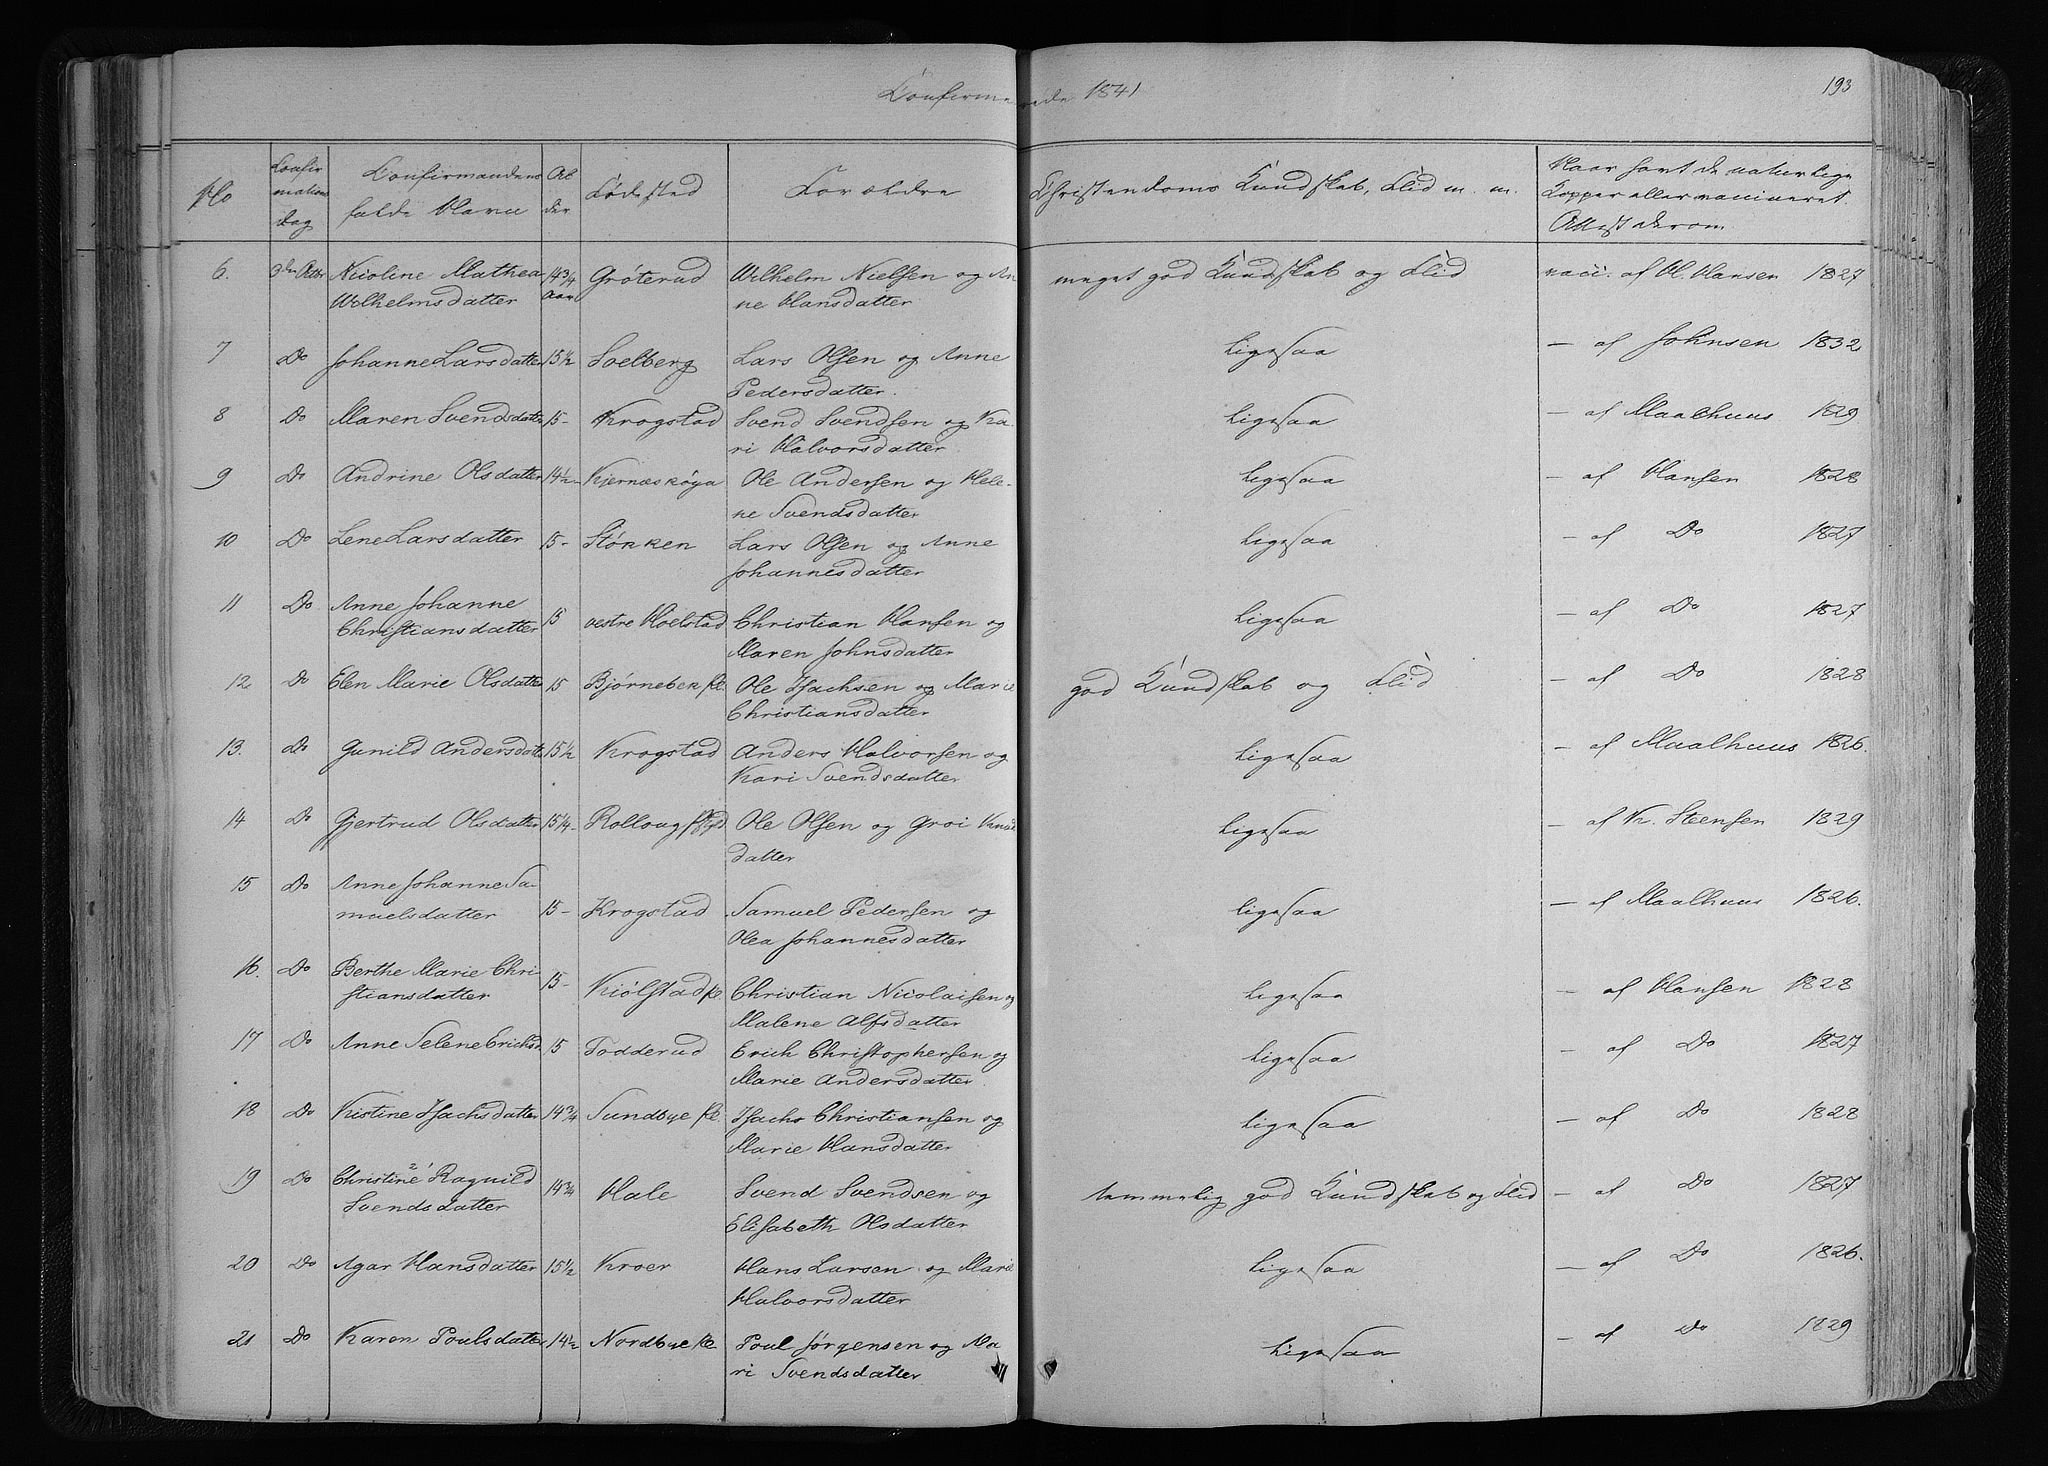 Confirmerede 1841
193
No
Confirmations Dag
Confirmandens fulde Navn
Alder
Fødested
Forældre
Christendoms Kundskab, Flid m. m.
Naar havt de naturlige Kopper eller vaccineret. Attest derom
6. 3die Octbr Nicoline Mathea 14 3/4 Grøterud Wilhelm Nielsen og An meget god Kundskab og Flid vacc. af H. Hansen 1827
Wilhelmsdatter Aar ne Hansdatter
7 Do Johanne Larsdatter 15 1/2 Svelberg Lars Olsen og Anne ligesaa — af Johnsen 1832
Pedersdatter.
8 Do Maren Svendsdatter 15 - Krogstad Svend Svendsen og Ka ligesaa — af Maalhuus 1829
ri Halvorsdatter
9 Do Andrine Olsdatter 14 1/2 - Kjernæskøya Ole Andersen og Hele- ligesaa — af Hansen 1828
ne Svendsdatter
10 Do Lene Larsdatter 15 - Størken Lars Olsen og Anne ligesaa — af Do 1827
Johannesdatter
11 Do Anne Johanne 15 vestre Hoelstad Christian Hansen og ligesaa — af Do 1827
Christiansdatter Maren Johnsdatter
12 Do Elen Marie Olsdatter 15 Bjørnebek Ole Isachsen og Marie god Kundskab og Flid — af Do 1828
Christiansdatter
13. Do Gunild Andersdatter 15 1/2 Krogstad Anders Halvorsen og ligesaa — af Maalhuus 1826.
Kari Svendsdatter
14 Do Gjertrud Olsdatter 15 1/4 - Rolloug Ole Olsen og Groi Knud ligesaa — af K. Steensen 1829
datter
15 Do Anne Johanne Sa- 15 - Krogstad Samuel Pedersen og ligesaa — af Maalhuus 1826.
muelsdatter Olea Johannesdatter
16. Do Berthe Marie Chri- 15 - Kiølstad Christian Nicolaisen og ligesaa — af Hansen 1828
stiansdatter Malene Alfsdatter
17 Do Anne Selene Ericksd 15 Todderud Erich Christophersen og ligesaa — af Do 1827
Marie Andersdatter
18 Do Kistine Isachsdatter 14 3/4 Sundbye Isachs Christiansen og ligesaa — af Do 1828
Marie Hansdatter
19 Do Christine Ragnild 14 3/4 Hale Svend Svendsen og temmelig god Kundskab og Flid — af Do 1827
Svendsdatter Elisabeth Olsdatter
20 Do Agar Hansdatter 15 1/2 Kroer Hans Larsen og Marie ligesaa — af Do 1826.
Halvorsdatter
21 Do Karen Poulsdatter 14 1/2 Nordbye Poul Jørgensen og Ma ligesaa — af Do 1829
ri Svendsdatter